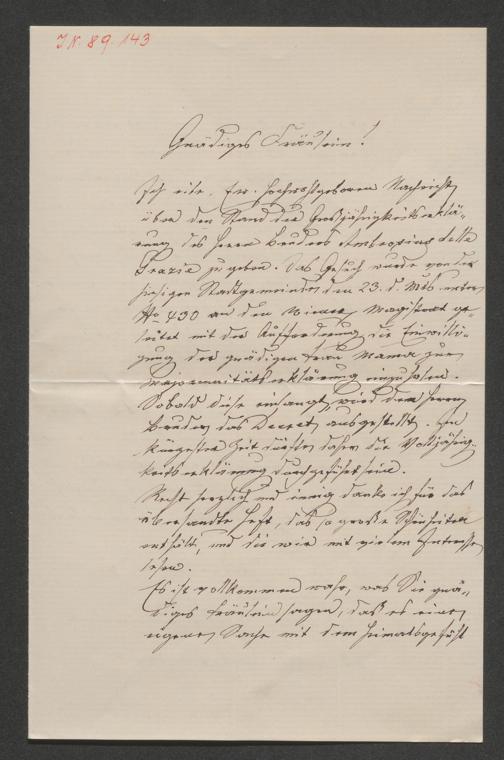 I.N. 89.143
Gnädiges Fräulein!
Ich eile, Ew. Hochwohlgeboren Nachricht
über den Stand der Großjährigkeitserklä-
rung des Herrn Bruders Ambrosius delle
Grazie zu geben. Das Gesuch wurde von der
hiesigen Stadtgemeinde den 23. d. Mts. unter
No 490 an den Wiener Magistrat ge-
leitet mit der Aufforderung die Einwilli-
gung der gnädigen Frau Mama zur
Majorennitätserklärung einzuholen.
Sobald diese einlangt, wird dem Herrn
Bruder das Decret ausgestellt. In
kürzester Zeit dürfte daher die Volljährig-
keitserklärung durchgeführt sein.
Recht herzlich und innig danke ich für das
übersandte Heft, das so große Schönheiten
enthält, und die wir mit vielem Interesse
lesen.
Es ist vollkommen wahr, was Sie gnä-
diges Fräulein sagen, daß es eine
eigene Sache mit dem Heimatsgefühl